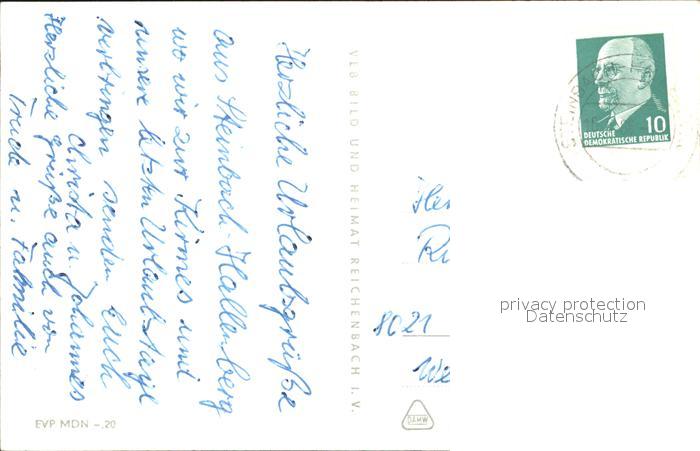 Herzliche Urlaubsgrüße
aus Steinbach-Hallenberg
wo wir zur Kirmes und
unsere letzten Urlaubstage
verbringen senden Euch
Christa u. Johannes
Herzliche Grüße auch von
Trude u. Familie
VEB BILD UND HEIMAT REICHENBACH I. V.
EVP MDN –,20
DEUTSCHE
DEMOKRATISCHE REPUBLIK
10
8021
privacy protection
Datenschutz